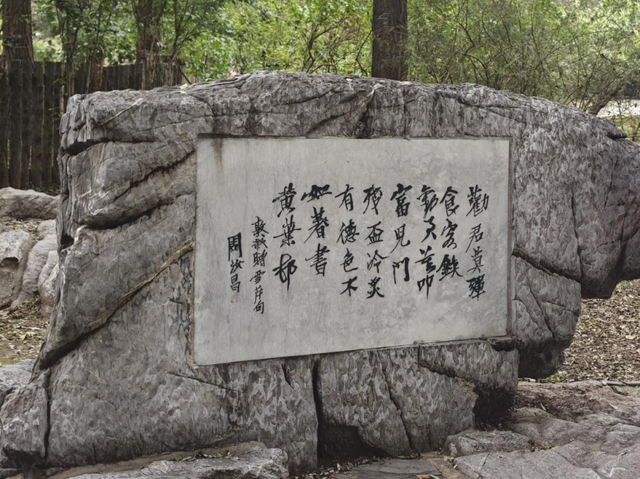 勸君莫彈
食客鋏
勸君莫叩
富兒門
殘盃冷炙
有德色不
如著書
黄葉邨
敦誠贈雪芹句
周汝昌